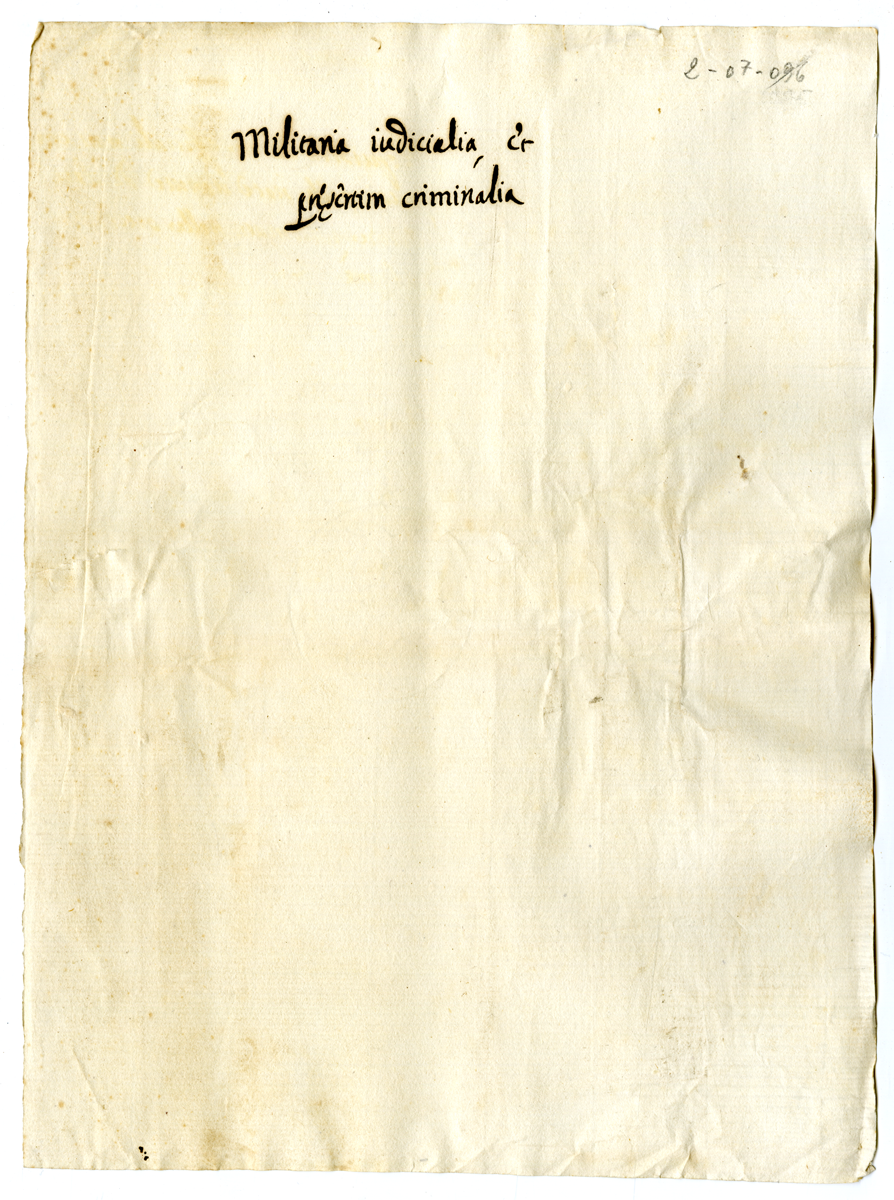 2-07-096
Militaria iudicialia, Et
criminalia